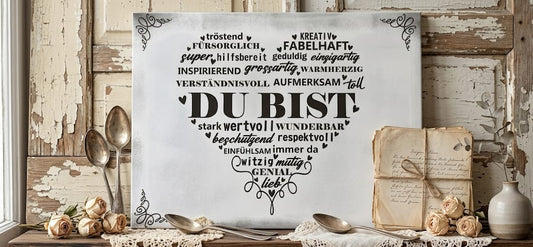 tröstend KREATIV
FÜRSORGLICH FABELHAFT
super hilfsbereit geduldig einzigartig
INSPIRIEREND grossartig WARMHERZIG
VERSTÄNDNISVOLL AUFMERKSAM toll
DU BIST
stark wertvoll WUNDERBAR
beschützend respektvoll
EINFÜHLSAM immer da
witzig mutig
GENIAL
lieb